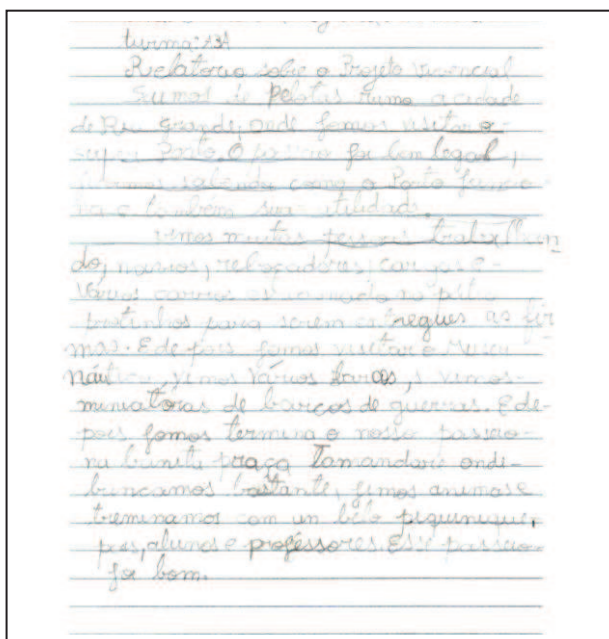 turma: A3A
Relatorio sobre o Projeto Vivencial
Sumos de Pelotas rumo a cidade
de Rio Grande, onde fomos visitar o
super Porto. O passeio foi bem legal,
ficamos sabendo como o Porto funcio-
na e também sua utilidade.
vimos muitas pessoas trabalhan
do, navios, rebocadores, cargas e
vários carros estacionado no pátio
protinhos para serem entregues as fir
mas. E de pois fomos visitar o Museu
Náutico, vimos Vários barcos, vimos
miniatoras de barcos de guerras. E de-
pois fomos termina o nosso passeio
na bunita praça Tamandaré onde
brincamos bastante, fimos animos e
treminamos com un belo piquinique,
pais, alunos e professores. Esse passeio
foi bom.